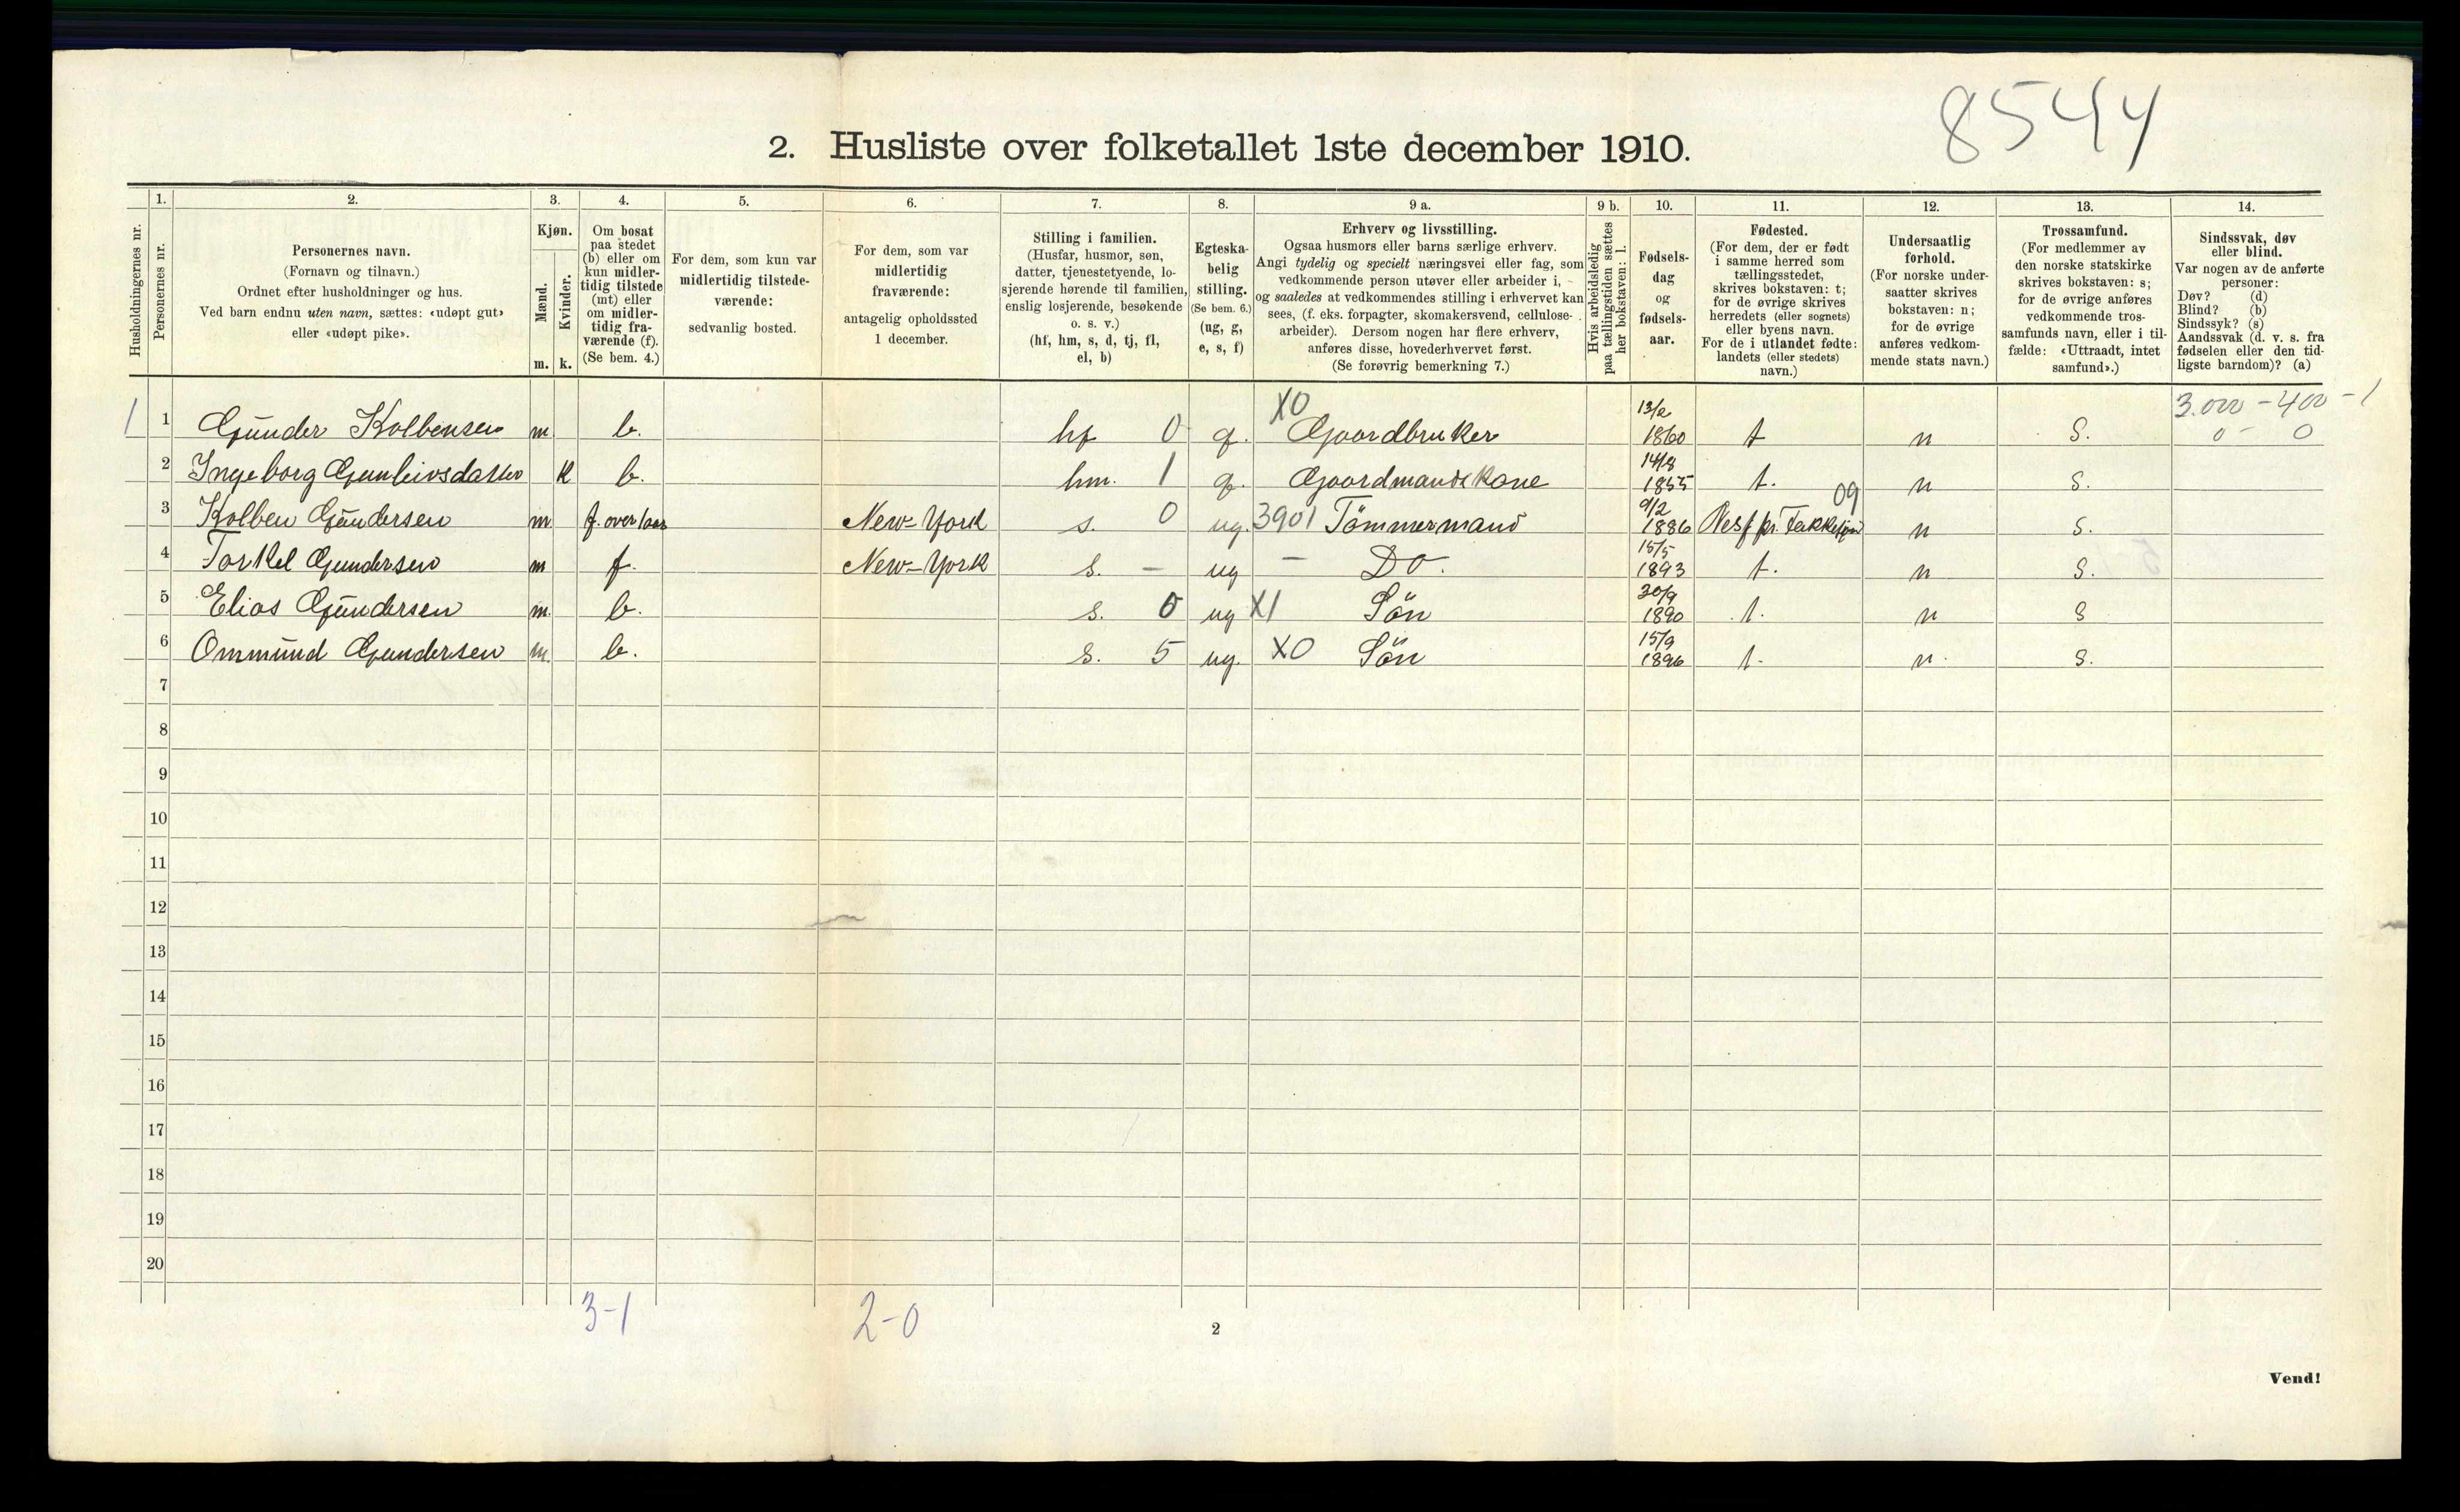 8544
2. Husliste over folketallet 1ste december 1910.
1. 2. 3. 4. 5. 6. 7. 8. 9 a. 9 b. 10. 11. 12. 13. 14.
Husholdningernes nr.
Personernes nr.
Personernes navn.
(Fornavn og tilnavn.)
Ordnet efter husholdninger og hus.
Ved barn endnu uten navn, sættes: «udøpt gut»
eller «udøpt pike».
Kjøn.
Mænd.
Kvinder.
m. k.
Om bosat
paa stedet
(b) eller om
kun midler-
tidig tilstede
(mt) eller
om midler-
tidig fra-
værende (f).
(Se bem. 4.)
For dem, som kun var
midlertidig tilstede-
værende:
sedvanlig bosted.
For dem, som var
midlertidig
fraværende:
antagelig opholdssted
1 december.
Stilling i familien.
(Husfar, husmor, søn,
datter, tjenestetyende, lo-
sjerende hørende til familien,
enslig losjerende, besøkende
o. s. v.)
(hf, hm, s, d, tj, fl,
el, b)
Egteska-
belig
stilling.
(Se bem. 6.)
(ug, g,
e, s, f)
Erhverv og livsstilling.
Ogsaa husmors eller barns særlige erhverv.
Angi tydelig og specielt næringsvei eller fag, som
vedkommende person utøver eller arbeider i,
og saaledes at vedkommendes stilling i erhvervet kan
sees, (f. eks. forpagter, skomakersvend, cellulose-
arbeider). Dersom nogen har flere erhverv,
anføres disse, hovederhvervet først.
(Se forøvrig bemerkning 7.)
Hvis arbeidsledig
paa tællingstiden sættes
her bokstaven: l.
Fødsels-
dag
og
fødsels-
aar.
Fødested.
(For dem, der er født
i samme herred som
tællingsstedet,
skrives bokstaven: t;
for de øvrige skrives
herredets (eller sognets)
eller byens navn.
For de i utlandet fødte:
landets (eller stedets)
navn.)
Undersaatlig
forhold.
(For norske under-
saatter skrives
bokstaven: n;
for de øvrige
anføres vedkom-
mende stats navn.)
Trossamfund.
(For medlemmer av
den norske statskirke
skrives bokstaven: s;
for de øvrige anføres
vedkommende tros-
samfunds navn, eller i til-
fælde: «Uttraadt, intet
samfund».)
Sindssvak, døv
eller blind.
Var nogen av de anførte
personer:
Døv? (d)
Blind? (b)
Sindssyk? (s)
Aandssvak (d. v. s. fra
fødselen eller den tid-
ligste barndom)? (a)
3.000 - 400 - 1
1 1 Gunder Kolbensen m. b. hf 0 g. X0 Gaardbruker 13/2 1860 t n S. 0 - 0
2 Ingeborg Gunleivsdatter k b. hm. 1 g. Gaardmandskone 14/8 1855 t. n S.
3 Kolben Gundersen m. f. over 1 aar New-York s. 0 ug. 3901 Tömmermand 9/2 1886 Nes 09 n S.
4 Torkel Gundersen m f. New-York s. - ug - Do. 15/5 1893 t. n S.
5 Elias Gundersen m. b. s. 0 ug X1 Sön 30/9 1890 t. n S
6 Ommund Gundersen m. b. s. 5 ug. X0 Sön 15/9 1896 t. n. S.
7
8
9
10
11
12
13
14
15
16
17
18
19
20
3-1 2-0
2
Vend!